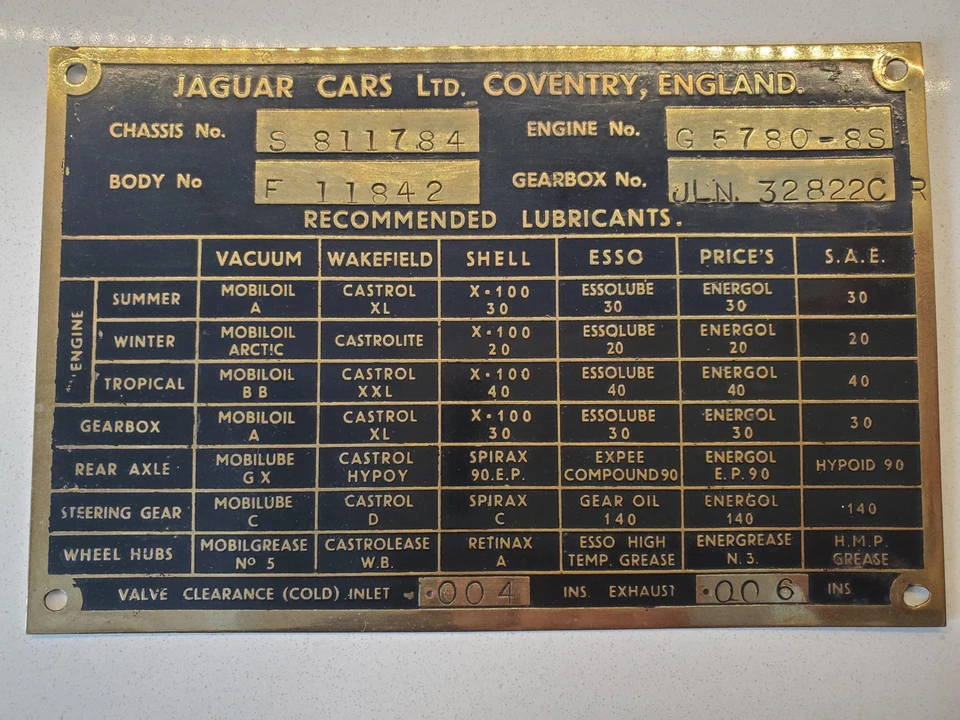 JAGUAR CARS LTD. COVENTRY, ENGLAND.
CHASSIS No. S 811784 ENGINE No. G 5780-8S
BODY No F 11842 GEARBOX No. JLN. 32822C R
RECOMMENDED LUBRICANTS.
VACUUM WAKEFIELD SHELL ESSO PRICE'S S.A.E.
ENGINE
SUMMER MOBILOIL A CASTROL XL X-100 30 ESSOLUBE 30 ENERGOL 30 30
WINTER MOBILOIL ARCTIC CASTROLITE X-100 20 ESSOLUBE 20 ENERGOL 20 20
TROPICAL MOBILOIL B B CASTROL XXL X-100 40 ESSOLUBE 40 ENERGOL 40 40
GEARBOX MOBILOIL A CASTROL XL X-100 30 ESSOLUBE 30 ENERGOL 30 30
REAR AXLE MOBILUBE G X CASTROL HYPOY SPIRAX 90.E.P. EXPEE COMPOUND 90 ENERGOL E.P. 90 HYPOID 90
STEERING GEAR MOBILUBE C CASTROL D SPIRAX C GEAR OIL 140 ENERGOL 140 140
WHEEL HUBS MOBILGREASE No 5 CASTROLEASE W.B. RETINAX A ESSO HIGH TEMP. GREASE ENERGREASE N.3. H.M.P. GREASE
VALVE CLEARANCE (COLD) INLET .004 INS. EXHAUST .006 INS.